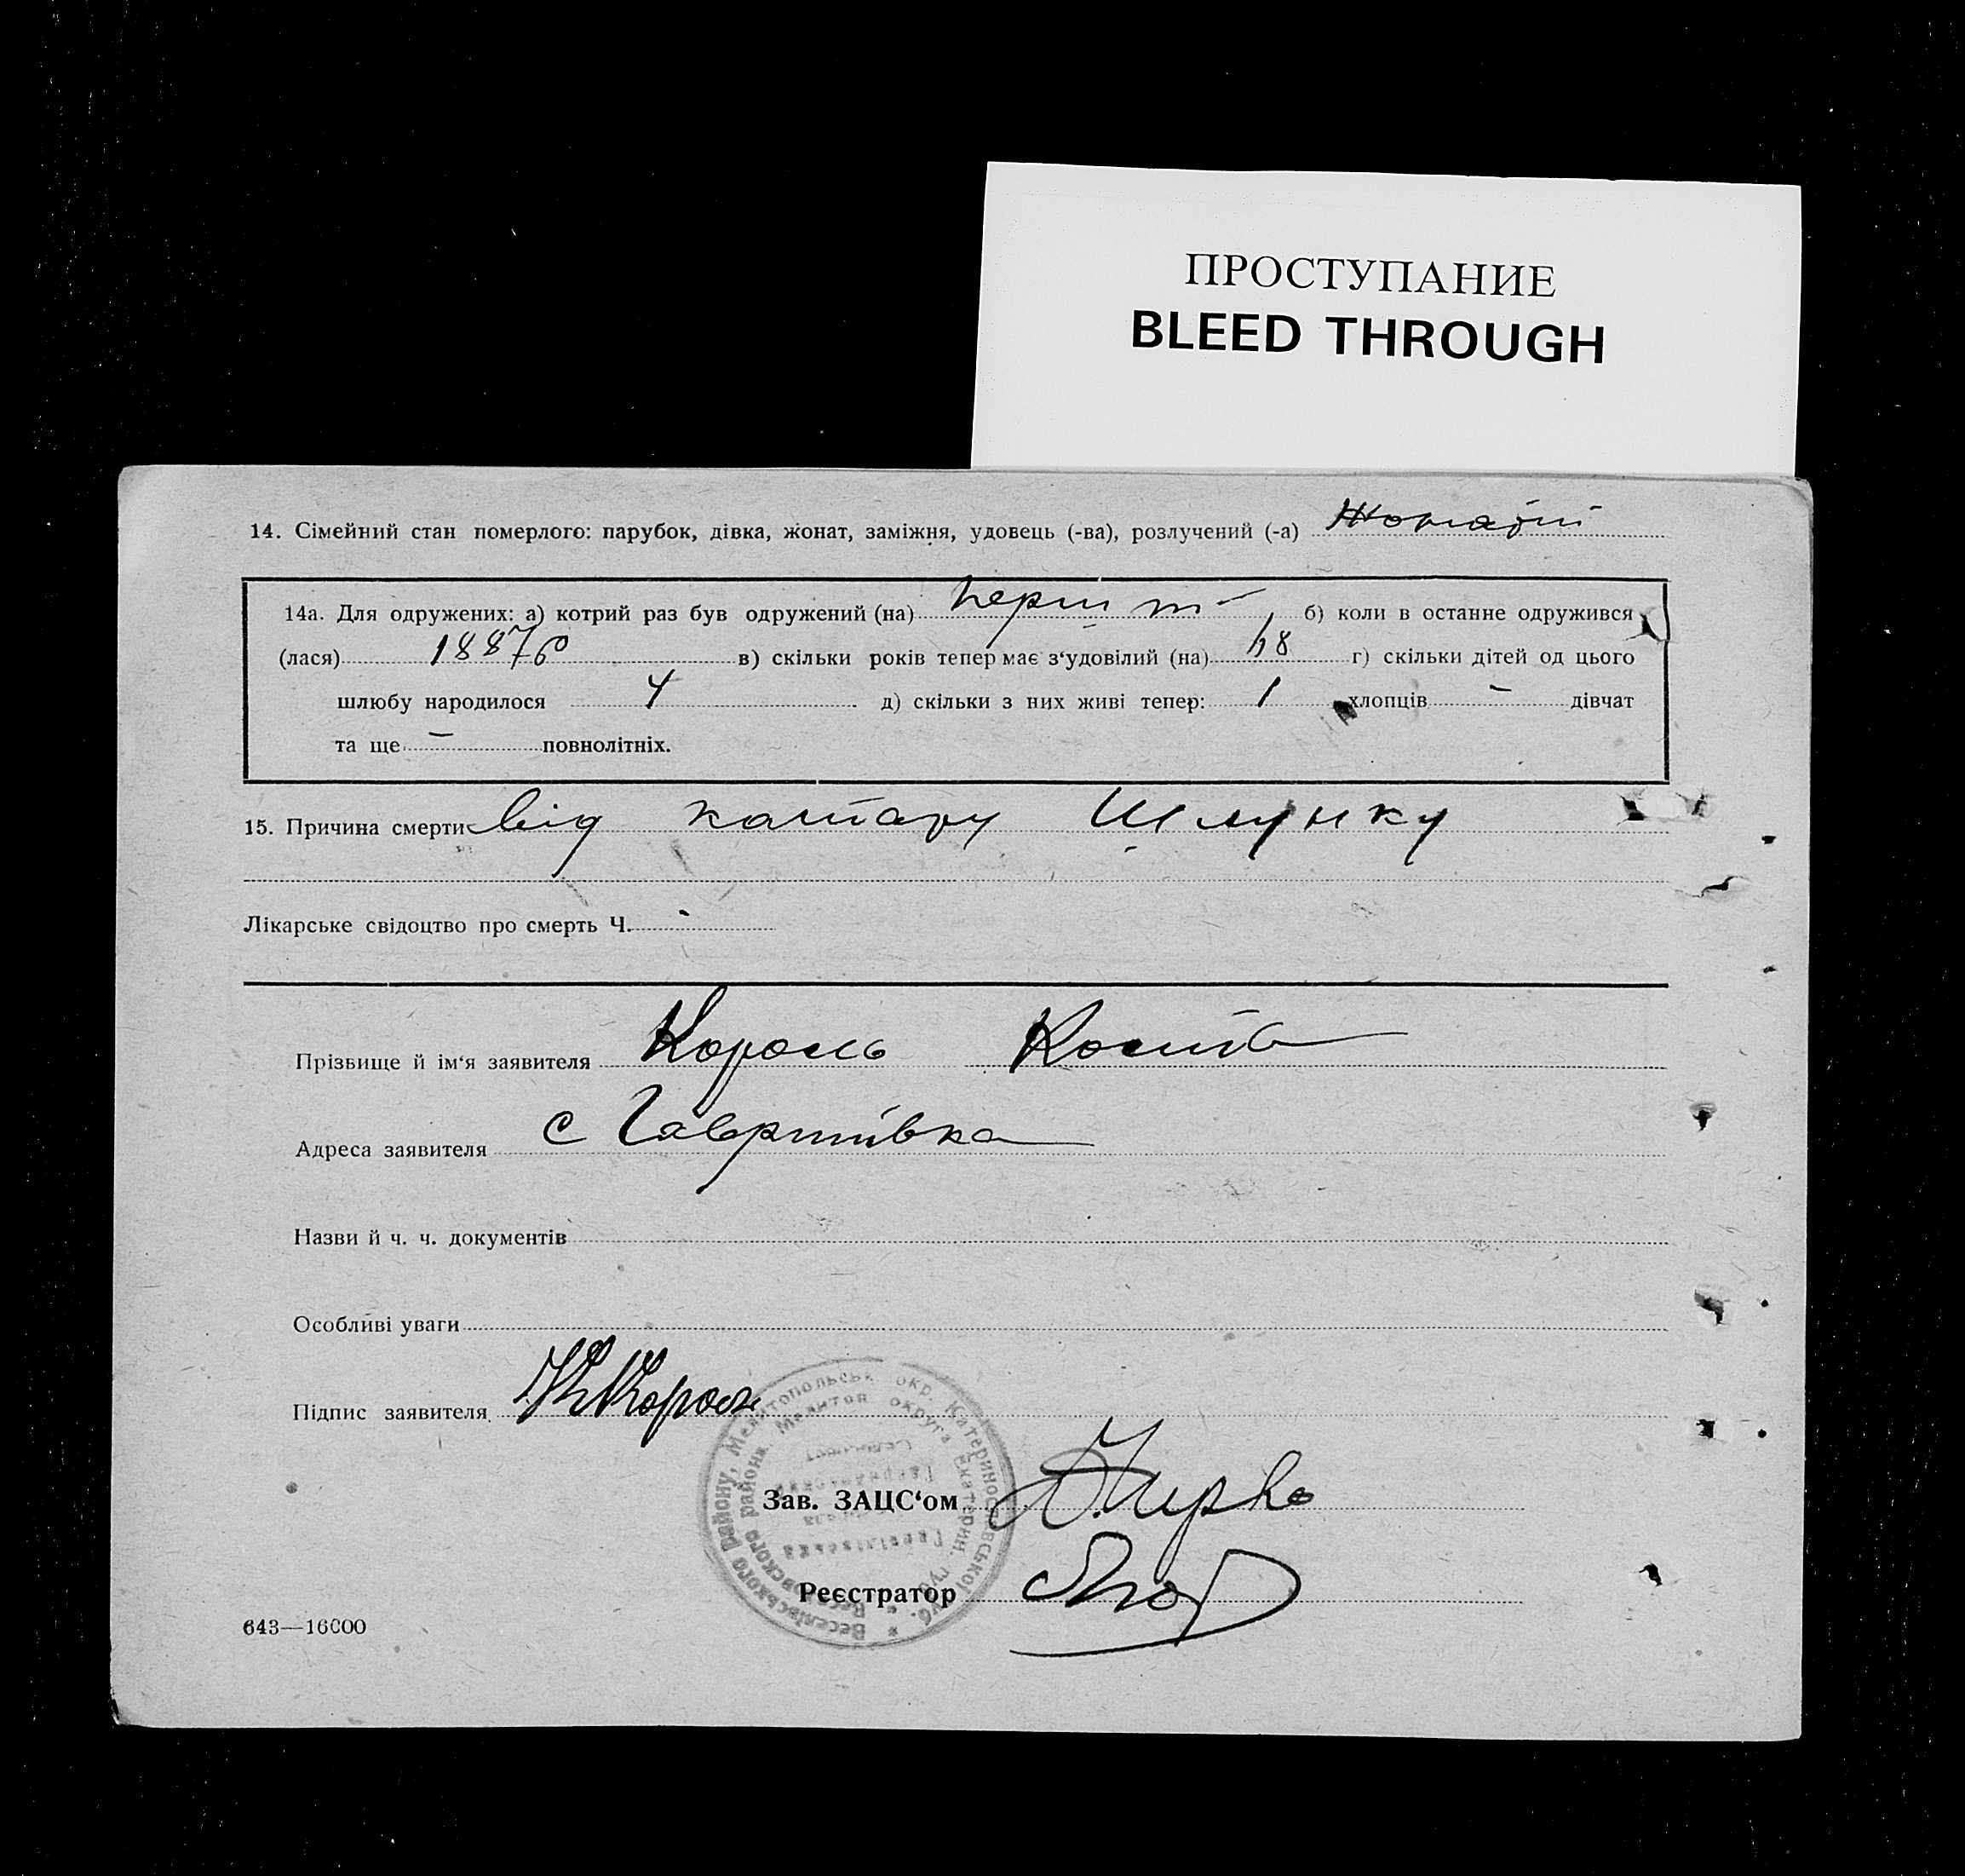 ПРОСТУПАНИЕ
BLEED THROUGH
14. Сімейний стан померлого: парубок, дівка, жонат, заміжня, удовець (-ва), розлучений (-а) Жонатий
14а. Для одружених: а) котрий раз був одружений (на) перший б) коли в останне одружився
(лася) 1887р в) скільки років тепер має з‘удовілий (на) 58 г) скільки дітей од цього
шлюбу народилося 4 д) скільки з них живі тепер: 1 хлопців - дівчат
та ще - повнолітніх.
15. Причина смерти від катару шлунку
Лікарське свідоцтво про смерть Ч. -
Прізвище й ім‘я заявителя Король
Адреса заявителя с Гаврилівка
Назви й ч. ч. документів
Особливі уваги
Підпис заявителя Король
Веселівського району, Мелітопольськ окр. Катеринославської губ.
района. Мелитоп округа Екатерин.
Зав. ЗАЦС‘ом
Реєстратор
643—16000